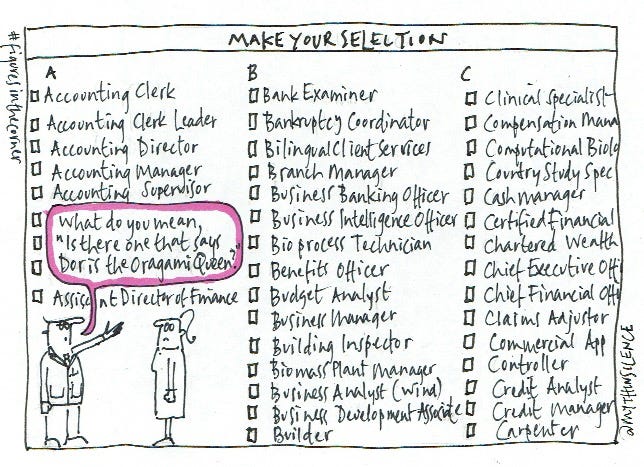 #figuresinthecorner
MAKE YOUR SELECTION
A
Accounting Clerk
Accounting Clerk Leader
Accounting Director
Accounting Manager
Accounting Supervisor
What do you mean,
"Is there one that says
Doris the Oragami Queen?"
Assis nt Director of Finance
B
Bank Examiner
Bankruptcy Coordinator
Bilingual Client Services
Branch Manager
Business Banking Officer
Business Intelligence Officer
Bio process Technician
Benefits Officer
Budget Analyst
Business Manager
Building Inspector
Biomass Plant Manager
Business Analyst (wind)
Business Development Associate
Builder
C
Clinical Specialist
Compensation Mana
Computational Biolo
Country Study Spec
Cash manager
Certified Financial
Chartered Wealth
Chief Executive Offi
Chief Financial Offi
Claims Adjustor
Commercial App
Controller
Credit Analyst
Credit Manager
Carpenter